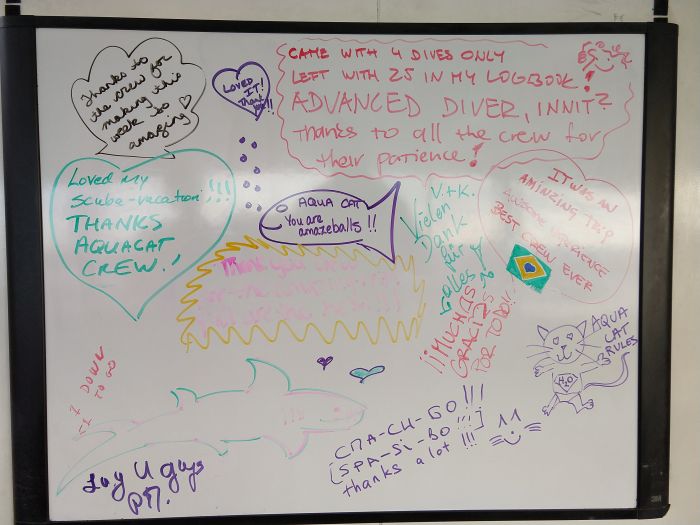 Thanks to
the crew for
making this
week so
amazing
LOVED
IT!
Thank
CAME WITH 4 DIVES ONLY
LEFT WITH 25 IN MY LOGBOOK!
ADVANCED DIVER, INNIT?
Thanks to all the crew for
their patience!
Loved my
scuba-vacation!!!
THANKS
AQUACAT
CREW!
AQUA CAT
You are
amazeballs!!
V.+K.
Vielen
Dank
für
alles
IT WAS AN
AMINZING TRIP
AWSOME EXPERIENCE
BEST CREW EVER
Thank you
¡¡MUCHAS
GRACIAS
POR TODO!!
AQUA
CAT
RULES
H2O
DOWN
TO GO
СПА-СИ-БО!!!
[SPA-SI-BO!!!]
thanks a lot!!!
Luv U guys